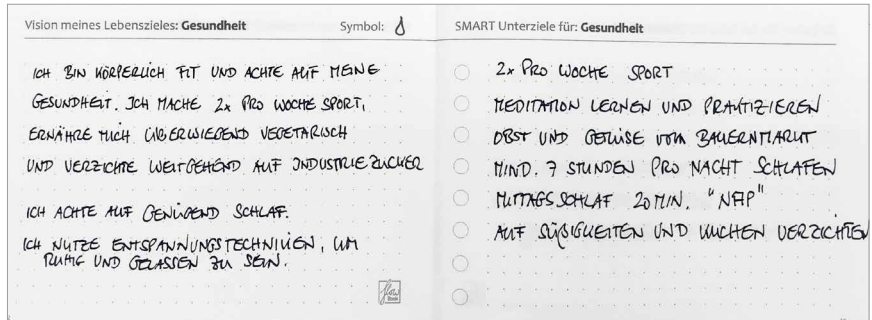 Vision meines Lebenszieles: Gesundheit Symbol:
ICH BIN KÖRPERLICH FIT UND ACHTE AUF MEINE
GESUNDHEIT. ICH MACHE 2x PRO WOCHE SPORT,
ERNÄHRE MICH ÜBERWIEGEND VEGETARISCH
UND VERZICHTE WEITGEHEND AUF INDUSTRIEZUCKER
ICH ACHTE AUF GENÜGEND SCHLAF.
ICH NUTZE ENTSPANNUNGSTECHNIKEN, UM
RUHIG UND GELASSEN ZU SEIN.
flow
Book
SMART Unterziele für: Gesundheit
2x PRO WOCHE SPORT
MEDITATION LERNEN UND PRAKTIZIEREN
OBST UND GEMÜSE VOM BAUERNMARKT
MIND. 7 STUNDEN PRO NACHT SCHLAFEN
MITTAGSSCHLAF 20 MIN. "NAP"
AUF SÜßIGKEITEN UND KUCHEN VERZICHTEN